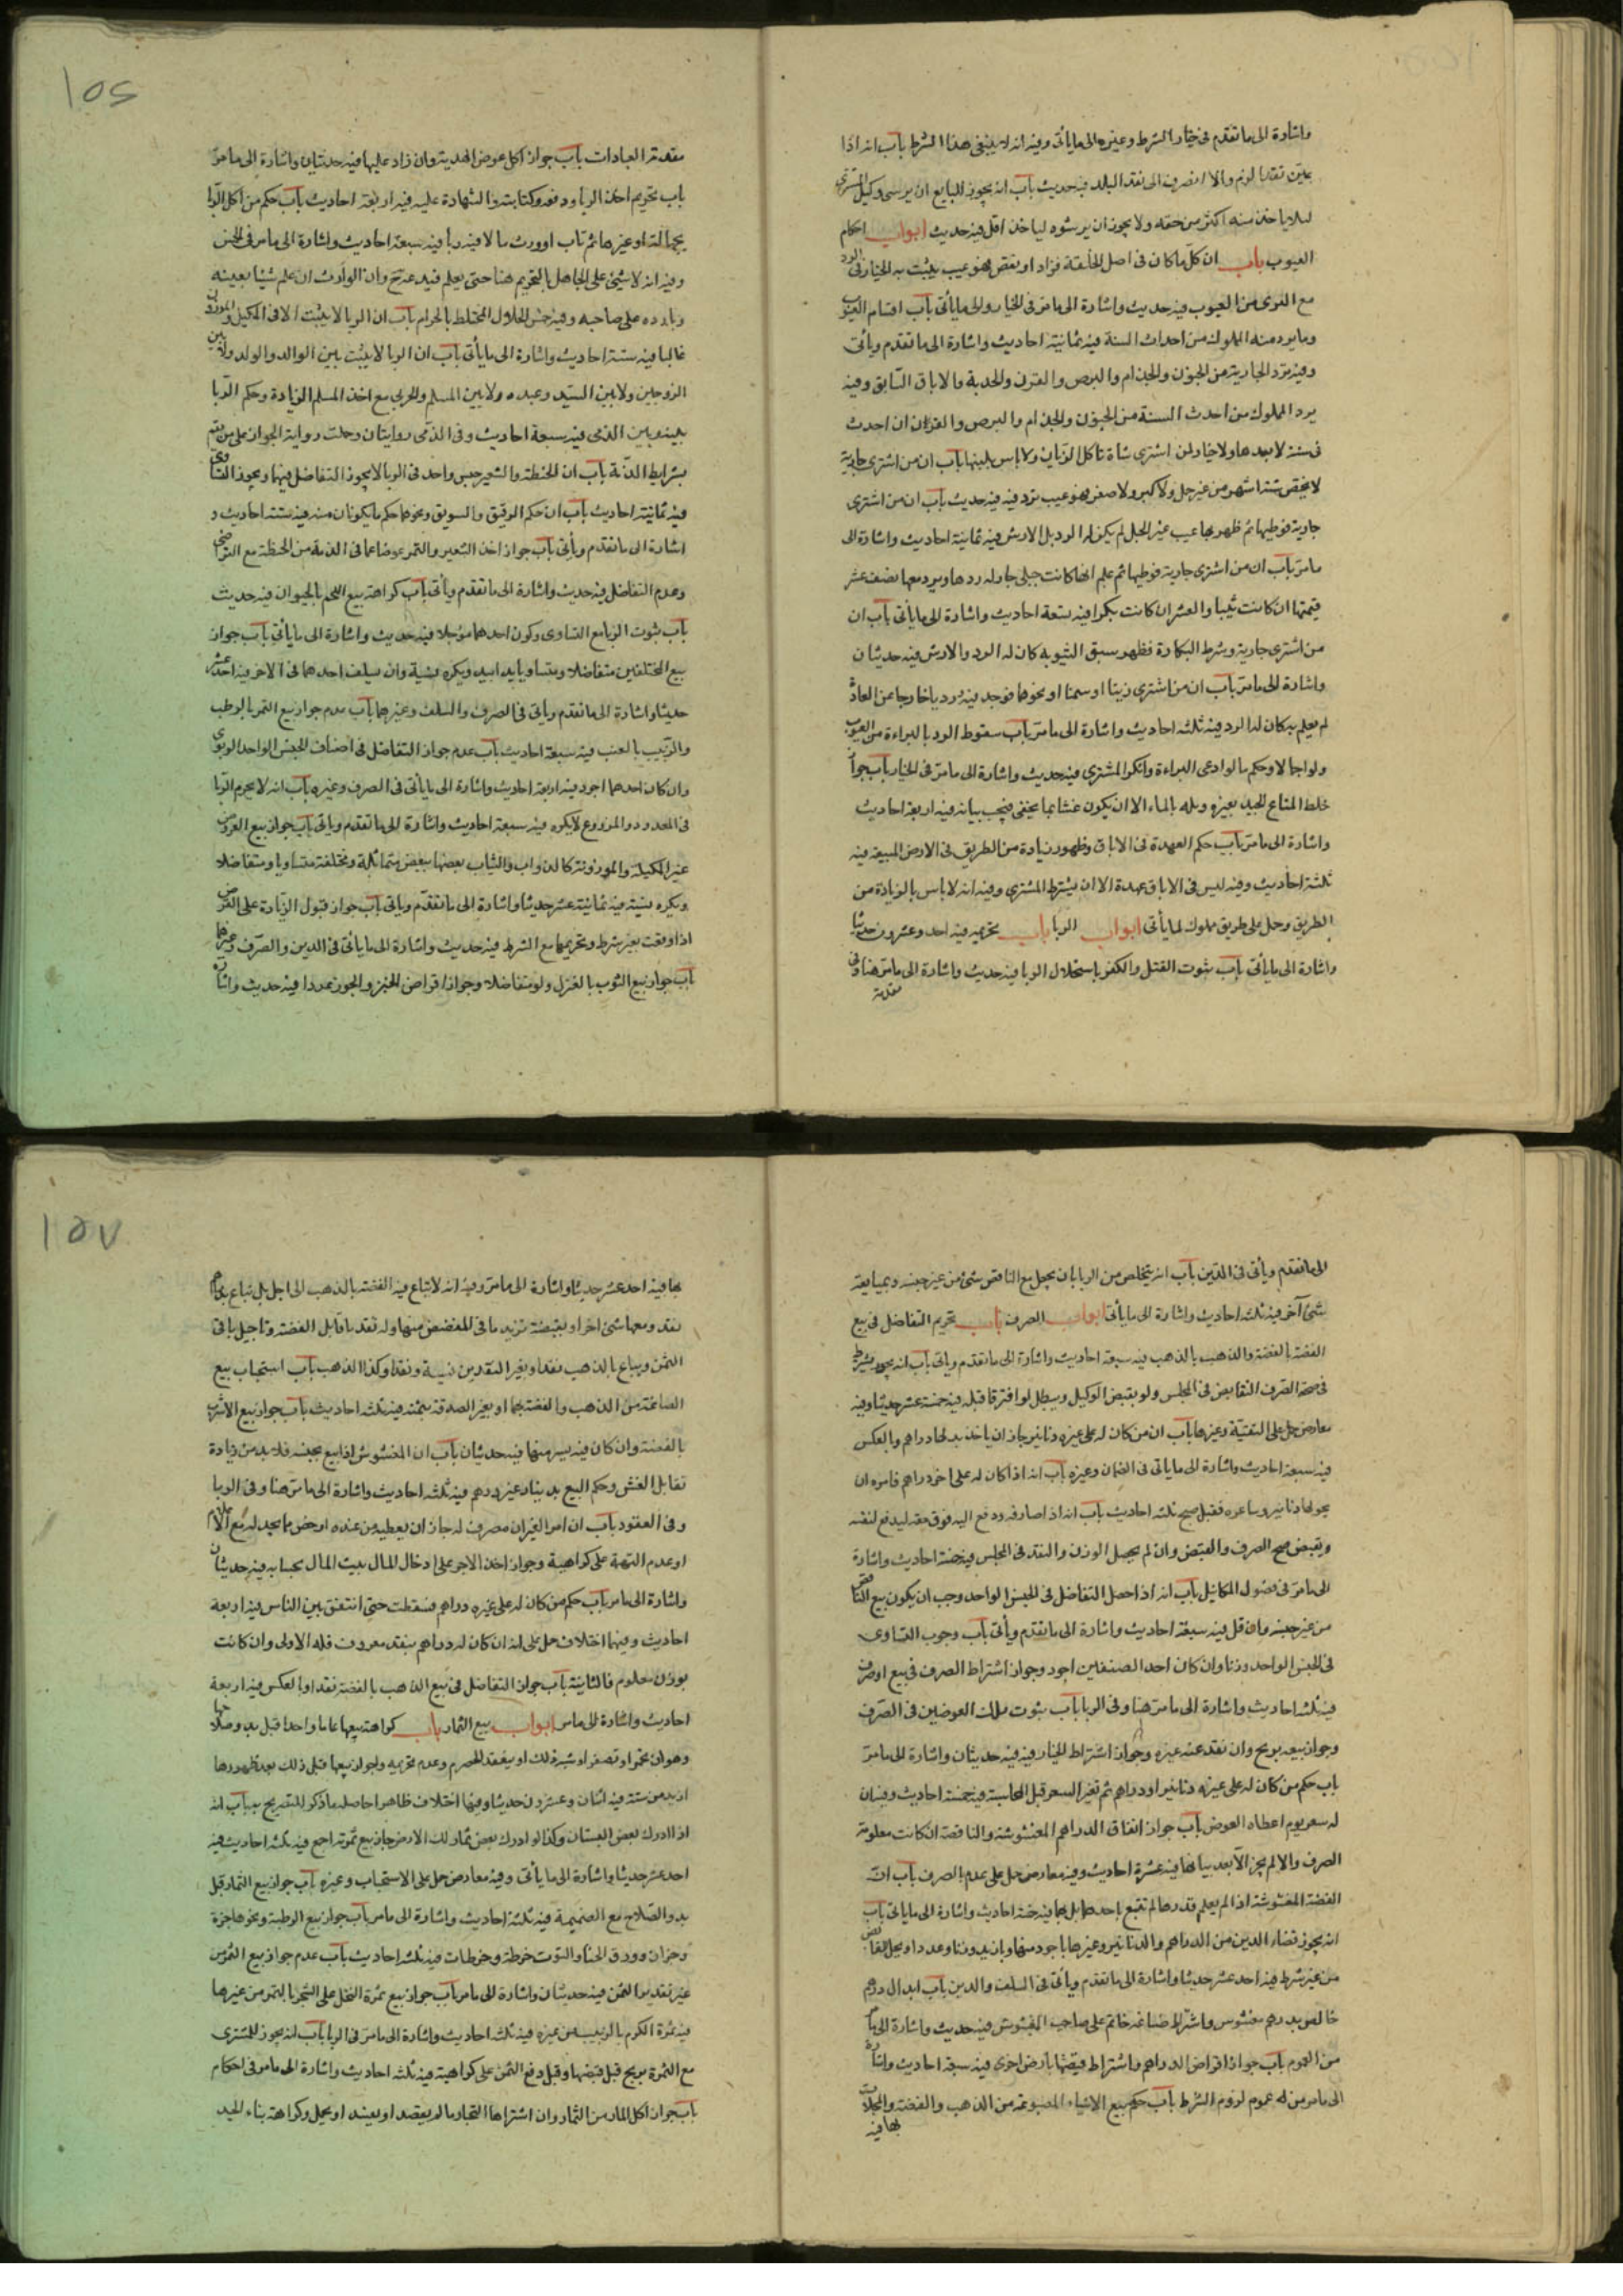 واشارة الى ما تقدم فى خيار الشرط وغيره والى ما يأتى وفيه انه لا ينبغى هذا الشرط باب انه اذا
عين نقدا لزم والا انصرف الى نقد البلد فيه حديث باب انه يجوز للبايع ان يرشى وكيل المشترى
لئلا ياخذ منه اكثر من حقه ولا يجوز ان يرشوه لياخذ اقل فيه حديث ابواب احكام
العيوب باب ان كل ما كان فى اصل الخلقة فزاد او نقص فهو عيب يثبت به الخيار فى الرد
مع التبرى من العيوب فيه حديث واشارة الى ما مر فى الخيار والى ما يأتى باب اقسام العيوب
وما يرد منه المملوك من احداث السنة فيه ثمانية احاديث واشارة الى ما تقدم ويأتى
وفيه ترد الجارية من الجنون والجذام والبرص والقرن والحدبة والاباق السابق وفيه
يرد المملوك من احدث السنة من الجنون والجذام والبرص والقرن ان احدث
فى سنة لا بعدها ولا خيار لمن اشترى شاة تاكل الذبان ولا باس بلبنها باب ان من اشترى جارية
لا تحيض ستة اشهر من غير حمل ولا كبر ولا صغر فهو عيب ترد فيه فيه حديث باب ان من اشترى
جارية فوطيها ثم ظهر بها عيب غير الحبل لم يكن له الرد بل الارش فيه ثمانية احاديث واشارة الى
ما مر باب ان من اشترى جارية فوطيها ثم علم انها كانت حبلى جاز له ردها ويرد معها نصف عشر
قيمتها ان كانت ثيبا والعشر ان كانت بكرا فيه تسعة احاديث واشارة الى ما يأتى باب ان
من اشترى جارية وشرط البكارة فظهر سبق الثيوبة كان له الرد والارش فيه حديثان
واشارة الى ما مر باب ان من اشترى زيتا او سمنا او نحوهما فوجد فيه درديا خارجا عن العادة
لم يعلم به كان له الرد فيه ثلثه احاديث واشارة الى ما مر باب سقوط الرد بالبراءة من العيوب
ولو اجمالا وحكم ما لو ادعى البراءة وانكر المشترى فيه حديث واشارة الى ما مر فى الخيار باب جواز
خلط المتاع الجيد بغيره وبله بالماء الا ان يكون غشا بما يخفى فيجب بيانه فيه اربعة احاديث
واشارة الى ما مر باب حكم العهدة فى الاباق وظهور زيادة من الطريق فى الارض المبيعة فيه
ثلثة احاديث وفيه ليس فى الاباق عهدة الا ان يشترط المشترى وفيه انه لا باس بالزيادة من
الطريق وحمل على طريق مملوك لما يأتى ابواب الربا باب تحريمه فيه احد وعشرون حديثا
واشارة الى ما يأتى باب ثبوت القتل والكفر باستحلال الربا فيه حديث واشارة الى ما مر هنا وفى
مقدمة
مقدمة العبادات باب جواز اكل عوض الهدية وان زاد عليها فيه حديثان واشارة الى ما مر
باب تحريم اخذ الربا ودفعه وكتابته والشهادة عليه فيه اربعة احاديث باب حكم من اكل الربا
بجهالة او غيرها ثم تاب او ورث مالا فيه ربا فيه سبعة احاديث واشارة الى ما مر فى الخمس
وفيه انه لا شىء على الجاهل بالتحريم هنا حتى يعلم فيدعه وان الوارث ان علم شيئا بعينه
ربا رده على صاحبه وفيه خمس الحلال المختلط بالحرام باب ان الربا لا يثبت الا فى المكيل والموزون
غالبا فيه ستة احاديث واشارة الى ما يأتى باب ان الربا لا يثبت بين الوالد والولد ولا بين
الزوجين ولا بين السيد وعبده ولا بين المسلم والحربى مع اخذ المسلم الزيادة وحكم الربا
بينه وبين الذمى فيه سبعة احاديث وفى الذمى روايتان وحملت رواية الجواز على من لم يقم
بشرايط الذمة باب ان الحنطة والشعير جنس واحد فى الربا لا يجوز التفاضل فيهما ويجوز التساوى
فيه ثمانية احاديث باب ان حكم الدقيق والسويق ونحوهما حكم ما يكونان منه فيه ستة احاديث و
اشارة الى ما تقدم ويأتى باب جواز اخذ الشعير والتمر عوضا عما فى الذمة من الحنطة مع التراضى
وعدم التفاضل فيه حديث واشارة الى ما تقدم ويأتى باب كراهة بيع اللحم بالحيوان فيه حديث
باب ثبوت الربا مع التساوى وكون احدهما مؤجلا فيه حديث واشارة الى ما يأتى باب جواز
بيع المختلفين متفاضلا ومتساويا يدا بيد ويكره نسية وان يسلف احدهما فى الاخر فيه احد عشر
حديثا واشارة الى ما تقدم ويأتى فى الصرف والسلف وغيرهما باب عدم جواز بيع التمر بالرطب
والزبيب بالعنب فيه سبعة احاديث باب عدم جواز التفاضل فى اصناف الجنس الواحد الربوى
وان كان احدهما اجود فيه اربعة احاديث واشارة الى ما يأتى فى الصرف وغيره باب انه لا يحرم الربا
فى المعدود والمزروع لا يكره فيه سبعة احاديث واشارة الى ما تقدم ويأتى باب جواز بيع العروض
غير المكيلة والموزونة كالدواب والثياب بعضها ببعض متماثلة ومختلفة متساويا ومتفاضلا
ويكره نسية فيه ثمانية عشر حديثا واشارة الى ما تقدم ويأتى باب جواز قبول الزيادة على القرض
اذا وقعت بغير شرط وتحريمها مع الشرط فيه حديث واشارة الى ما يأتى فى الدين والصرف وغيرهما
باب جواز بيع الثوب بالغزل ولو متفاضلا وجواز اقراض الخبز والجوز عددا فيه حديث واشارة
١٥٦
الى ما تقدم ويأتى فى الدين باب انه يتخلص من الربا بان يجعل مع الناقص شىء من غير جنسه وبمبايعة
شىء آخر فيه ثلثه احاديث واشارة الى ما يأتى ابواب الصرف باب تحريم التفاضل فى بيع
الفضة بالفضة والذهب بالذهب فيه سبعة احاديث واشارة الى ما تقدم ويأتى باب انه يشترط
فى صحة الصرف التقابض فى المجلس ولو بقبض الوكيل ويبطل لو افترقا قبله فيه خمسة عشر حديثا وفيه
معارض حمل على التقية وغيرها باب ان من كان له على غيره دنانير جاز ان ياخذ بدلها دراهم وبالعكس
فيه سبعة احاديث واشارة الى ما يأتى فى الضمان وغيره باب انه اذا كان له على اخر دراهم فامره ان
يحولها دنانير وساعره فقبل صح ثلثه احاديث باب انه اذا صارفه ودفع اليه فوق حقه ليدفع لنفسه
ويقبض صح الصرف والقبض وان لم يحصل الوزن والنقد فى المجلس فيه خمسة احاديث واشارة
الى ما مر فى فضول المكائيل باب انه اذا حصل التفاضل فى الجنس الواحد وجب ان يكون مع الناقص
من غير جنسه وان قل فيه سبعة احاديث واشارة الى ما تقدم ويأتى باب وجوب التساوى
فى الجنس الواحد وزنا وان كان احد الصنفين اجود وجواز اشتراط الصرف فى بيع او صرف
فيه ثلثه احاديث واشارة الى ما مر هنا وفى الربا باب ثبوت ملك العوضين فى الصرف
وجواز بيعه بربح وان نقد عنه غيره وجواز اشتراط الخيار فيه فيه حديثان واشارة الى ما مر
باب حكم من كان له على غيره دنانير او دراهم ثم تغير السعر قبل المحاسبة فيه خمسة احاديث وفيه ان
له سعر يوم اعطاه العوض باب جواز انفاق الدراهم المغشوشة والناقصة ان كانت معلومة
الصرف والا لم يجز الا بعد بيانها فيه عشرة احاديث وفيه معارض حمل على عدم الصرف باب ان
الفضة المغشوشة اذا لم يعلم قدرها لم تبع باحدهما بل بها فيه خمسة احاديث واشارة الى ما يأتى باب
انه يجوز قضاء الدين من الدراهم والدنانير وغيرها باجود منها وبازيد وزنا وعددا
من غير شرط فيه احد عشر حديثا واشارة الى ما تقدم ويأتى فى السلف والدين باب ابدال درهم
خالص بدرهم مغشوش واشتراط صياغة خاتم على صاحب المغشوش فيه حديث واشارة الى ما مر
من العموم باب جواز اقراض الدراهم واشتراط قبضها بارض اخرى فيه سبعة احاديث واشارة
الى ما مر من عموم لزوم الشرط باب حكم بيع الاشياء المصوغة من الذهب والفضة والمحلات
بها فيه
بها فيه احد عشر حديثا واشارة الى ما مر وفيه انه لا تباع فيه الفضة بالذهب الى اجل بل تباع بها
نقد ومعها شىء اخر او بفضة تزيد ما فى المفضض منها وله نقد ما قابل الفضة وتاجيل باقى
الثمن ويباع بالذهب نقدا وبغير النقدين نسية ونقدا وكذا الذهب باب استحباب بيع
الصاغة من الذهب والفضة بهما او بغير الصدقة بثمنه فيه ثلثه احاديث باب جواز بيع الاسرب
بالفضة وان كان فيه يسير منها فيه حديثان باب ان المغشوش اذا بيع بجنسه فلابد من زيادة
تقابل الغش وحكم البيع بدينار غير درهم فيه ثلثه احاديث واشارة الى ما مر هنا وفى الربا
وفى العقود باب ان امر الغير ان يصرف له جاز ان يعطيه من عنده ارخص مما يجد له مع الاعلام
او عدم التهمة على كراهية وجواز اخذ الاجر على ادخال المال بيت المال بحسابه فيه حديثان
واشارة الى ما مر باب حكم من كان له على غيره دراهم فسقطت حتى انتنفق بين الناس فيه اربعة
احاديث وفيها اختلاف حمل على انه ان كان له دراهم بنقد معروف فله الاولى وان كانت
بوزن معلوم فالثانية باب جواز التفاضل فى بيع الذهب بالفضة نقدا وبالعكس فيه اربعة
احاديث واشارة الى ما مر ابواب بيع الثمار باب كراهة بيعها عاما واحدا قبل بدو صلاحها
وهو ان تحمر او تصفر او شبه ذلك او ينعقد الحصرم وعدم تحريمه وجواز بيعها قبل ذلك بعد ظهورها
ازيد من سنة فيه اثنان وعشرون حديثا وفيها اختلاف ظاهرا حاصله ما ذكر للتصريح به باب انه
اذا ادرك بعض البستان وكذا لو ادرك بعض ثمار تلك الارض جاز بيع ثمرته اجمع فيه ثلثه احاديث فيه
احد عشر حديثا واشارة الى ما يأتى وفيه معارض حمل على الاستحباب وغيره باب جواز بيع الثمار قبل
بدو الصلاح مع الضميمة فيه ثلثة احاديث واشارة الى ما مر باب جواز بيع الرطبة ونحوها جزة
وجزات وورق الحنا والتوت خرطة وخرطات فيه ثلثه احاديث باب عدم جواز بيع الثمرة من
غير تقدير الثمن فيه حديثان واشارة الى ما مر باب جواز بيع ثمرة النخل على الشجر بالتمر من غيرها
فيه ثمرة الكرم بالزبيب من غيره فيه ثلثه احاديث واشارة الى ما مر فى الربا باب انه يجوز للمشترى
مع الثمرة بربح قبل قبضها وقبل دفع الثمن على كراهية فيه ثلثه احاديث واشارة الى ما مر فى احكام
باب جواز اكل المار من الثمار وان اشتراها التجار ما لم يقصد او يفسد او يحمل وكراهة بناء
١٥٧